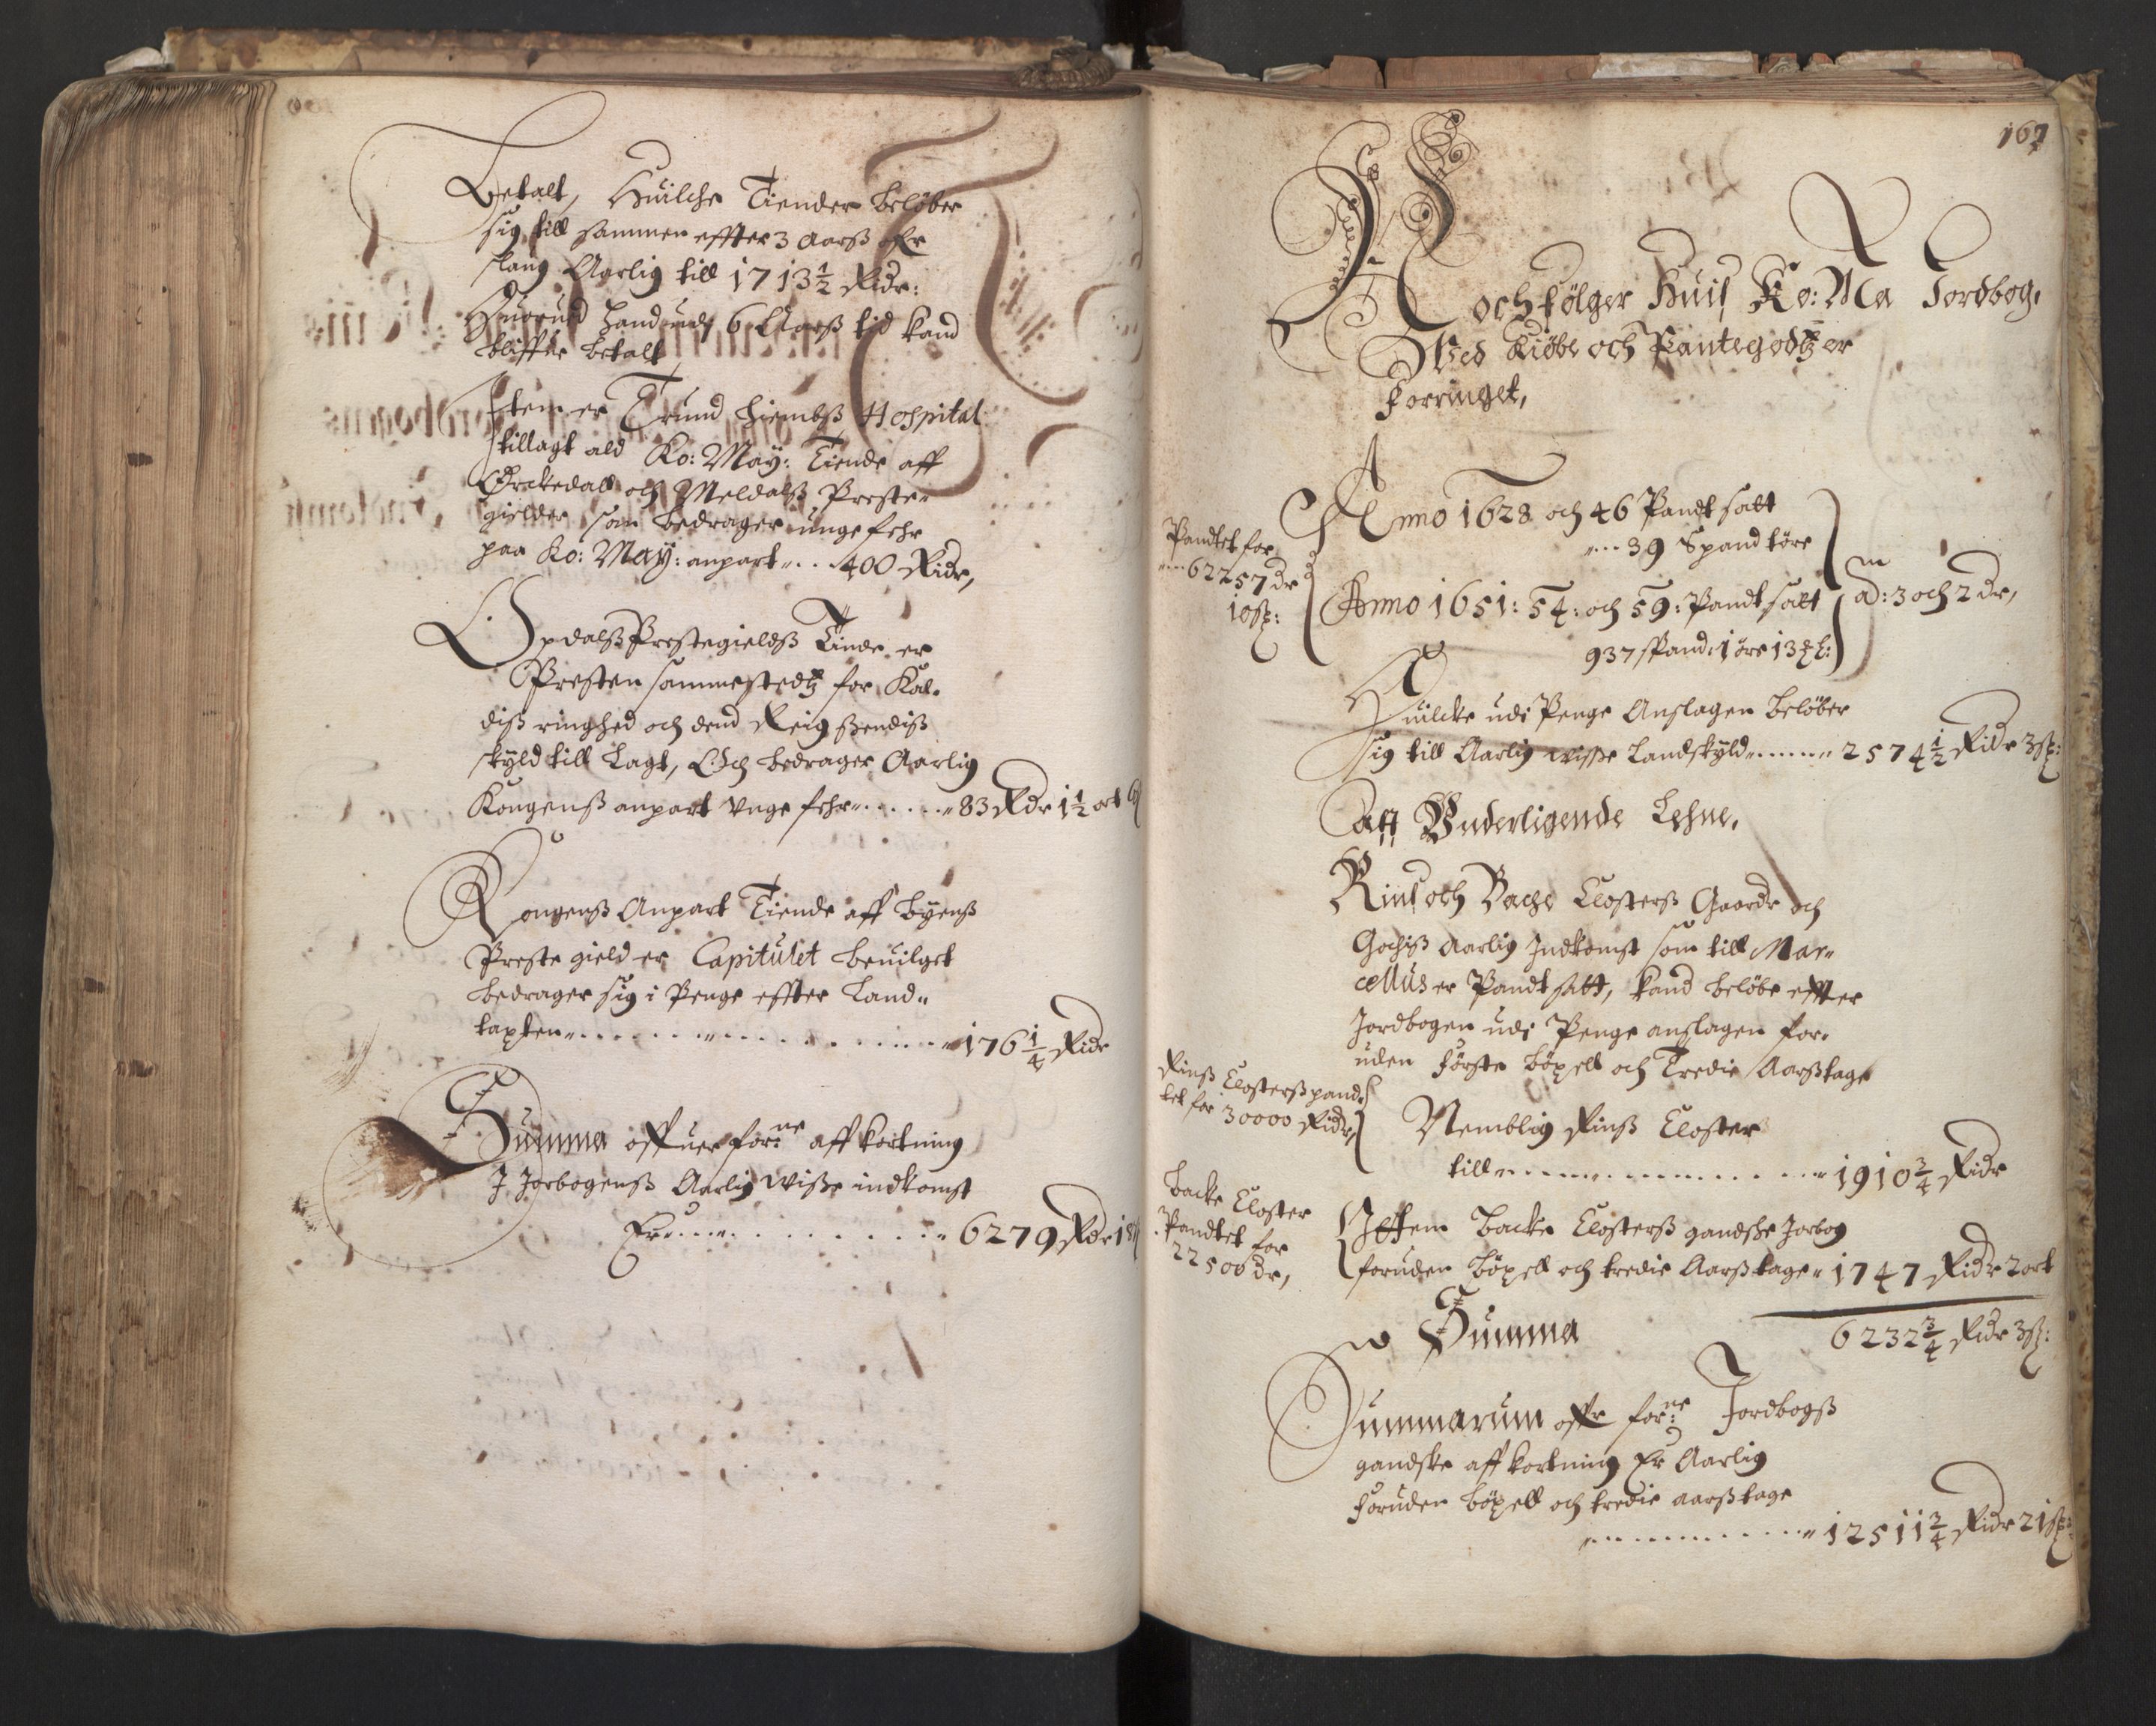 Betalt, Huilche Tiender beløber
sig till sammen effter 3 Aarß
slaug Aarlig till 1713½ Ridr:
Huorued hand udj 6 Aarß tid kand
bliffue betalt
Item er Trundhiembß Hospital
tillagt ald Ko: May: Tiende aff
Ørckedall och Meldalß Preste-
gielder som bedrager ungefehr
paa Ko: May: anpart 400 Ridr,
Opdalß Prestegieldß Tinde er
Presten sammestedtz for Kal-
diß ringhed och dend Reigßendiß
skyld till Lagt, Och bedrager Aarlig
Kongenß anpart Ungefehr 83 Rdr 1½ ort
Kongenß Anpart Tiende aff Byenß
Preste gield er Capitulet beuilget
bedrager sig i Penge effter Land-
taxten 176¼ Ridr
Summa offuer forne affkortning
I Jorbogenß Aarlig Wiße indkomst
Er 6279 Rdr 18
167
Noch følger Huiß Ko: Ma Jordbog,
Med Kiøbe och Pantegodtz er
Forringet,
Anno 1628 och 46 Pandtsatt
39 Spand 1øre
Pandtet for
62257 dr
10ß:
Anno 1651: 54: och 59: Pandtsatt
ad: 3 och 2 dr,
937 spand: 1 øre 13
Huilcke udi Penge Anslagen beløber
sig till Aarlig wisse Landskyld 2574½ Ridr 3ß:
aff Underligende Lehne,
Rinß och Bache Closterß Gaarde och
Godziß aarlig Indkomst som till Mar-
cellus er Pandtsatt, kand beløbe effter
Jordbogen udj Penge anslagen for-
uden Første Bøxell och Tredie Aarßtage
Rinß Closterß pand-
tet for 30000 Ridr,
Nemblig Rinß Closter
till 1910¾ Ridr
Backe Closter
Pandtet for
22500 dr,
Item Backe Closterß gandsche Jorbog
foruden Bøxell och tredie Aarßtage 1747 Ridr 2 ort
Summa 6232¾ Ridr 3ß:
Summarum offr forne Jordbogß
gandske affkortning Er Aarlig
Foruden Bøxell och tredie aarßtage
12511¾ Ridr 21ß: